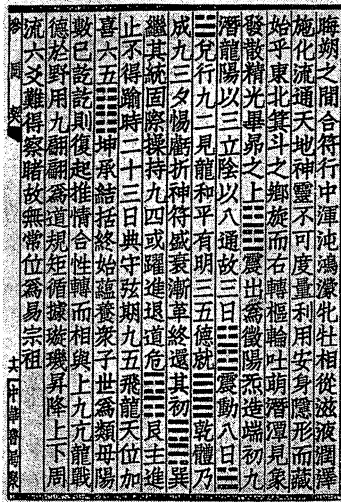 晦朔之間合符行中渾沌鴻濛牝牡相從滋液潤澤
施化流通天地神靈不可度量利用安身隱形而藏
始乎東北箕斗之鄉旋而右轉樞輪吐萌潛潭見象
發散精光畢昴之上䷲震出爲徵陽炁造端初九
潛龍陽以三立陰以八通故三日䷲震動八日☱
☱兌行九二見龍和平有明三五德就䷀乾體乃
成九三夕惕虧折神符盛衰漸革終還其初䷸巽
繼其統固際操持九四或躍進退道危䷳艮主進
止不得踰時二十三日典守弦期九五飛龍天位加
喜六五䷁坤承結括終始韞養衆子世爲類母陽
數已訖訖則復起推情合性轉而相與上九亢龍戰
德於野用九翩翩爲道規矩循據璇璣昇降上下周
流六爻難得察睹故無常位爲易宗祖
參同契 六 中華書局聚